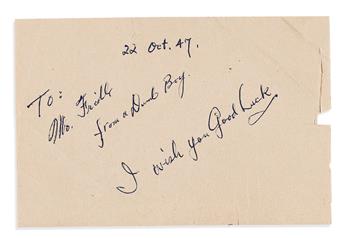 22 Oct. 47.
To:
Mo. Fidle
from a Dumb Boy.
I wish you Good Luck